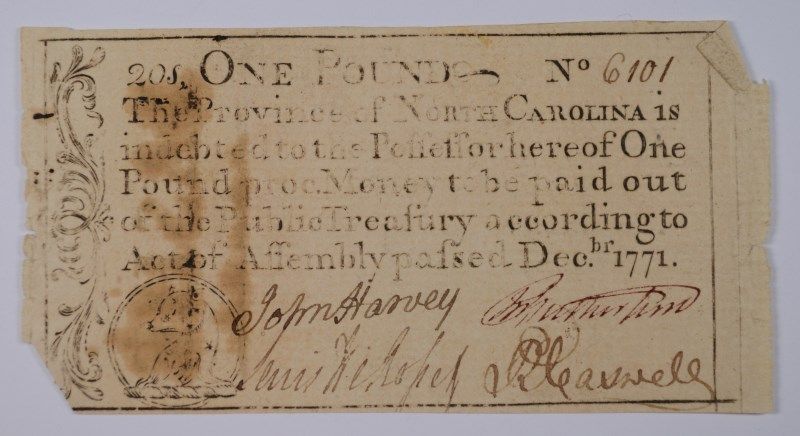 20s, ONE POUND No 6101
The Province of NORTH CAROLINA is
indebted to the Poſſeſſor hereof One
Pound proc. Money to be paid out
of the Public Treaſury according to
Act of Aſſembly paſſed Dec.br 1771.
John Harvey
Lewis De Roſſet R Caswell